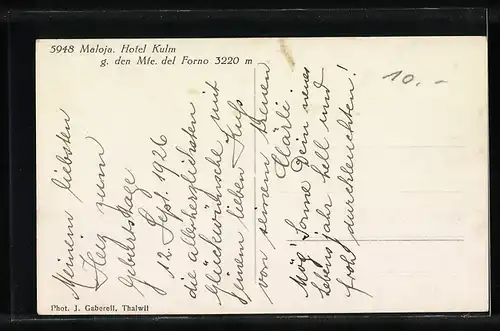 5948 Maloja. Hotel Kulm
g. den Mte. del Forno 3220 m
10.-
Meinem liebsten
Herz zum
Geburtstage
12. Sept. 1926
die allerherzlichsten
Glückwünsche mit
einem lieben Kuss
von seinem kleinen
Clärli.
Mög' Sonne Dein neues
Lebensjahr hell und
froh durchleuchten!
Phot. J. Gaberell, Thalwil